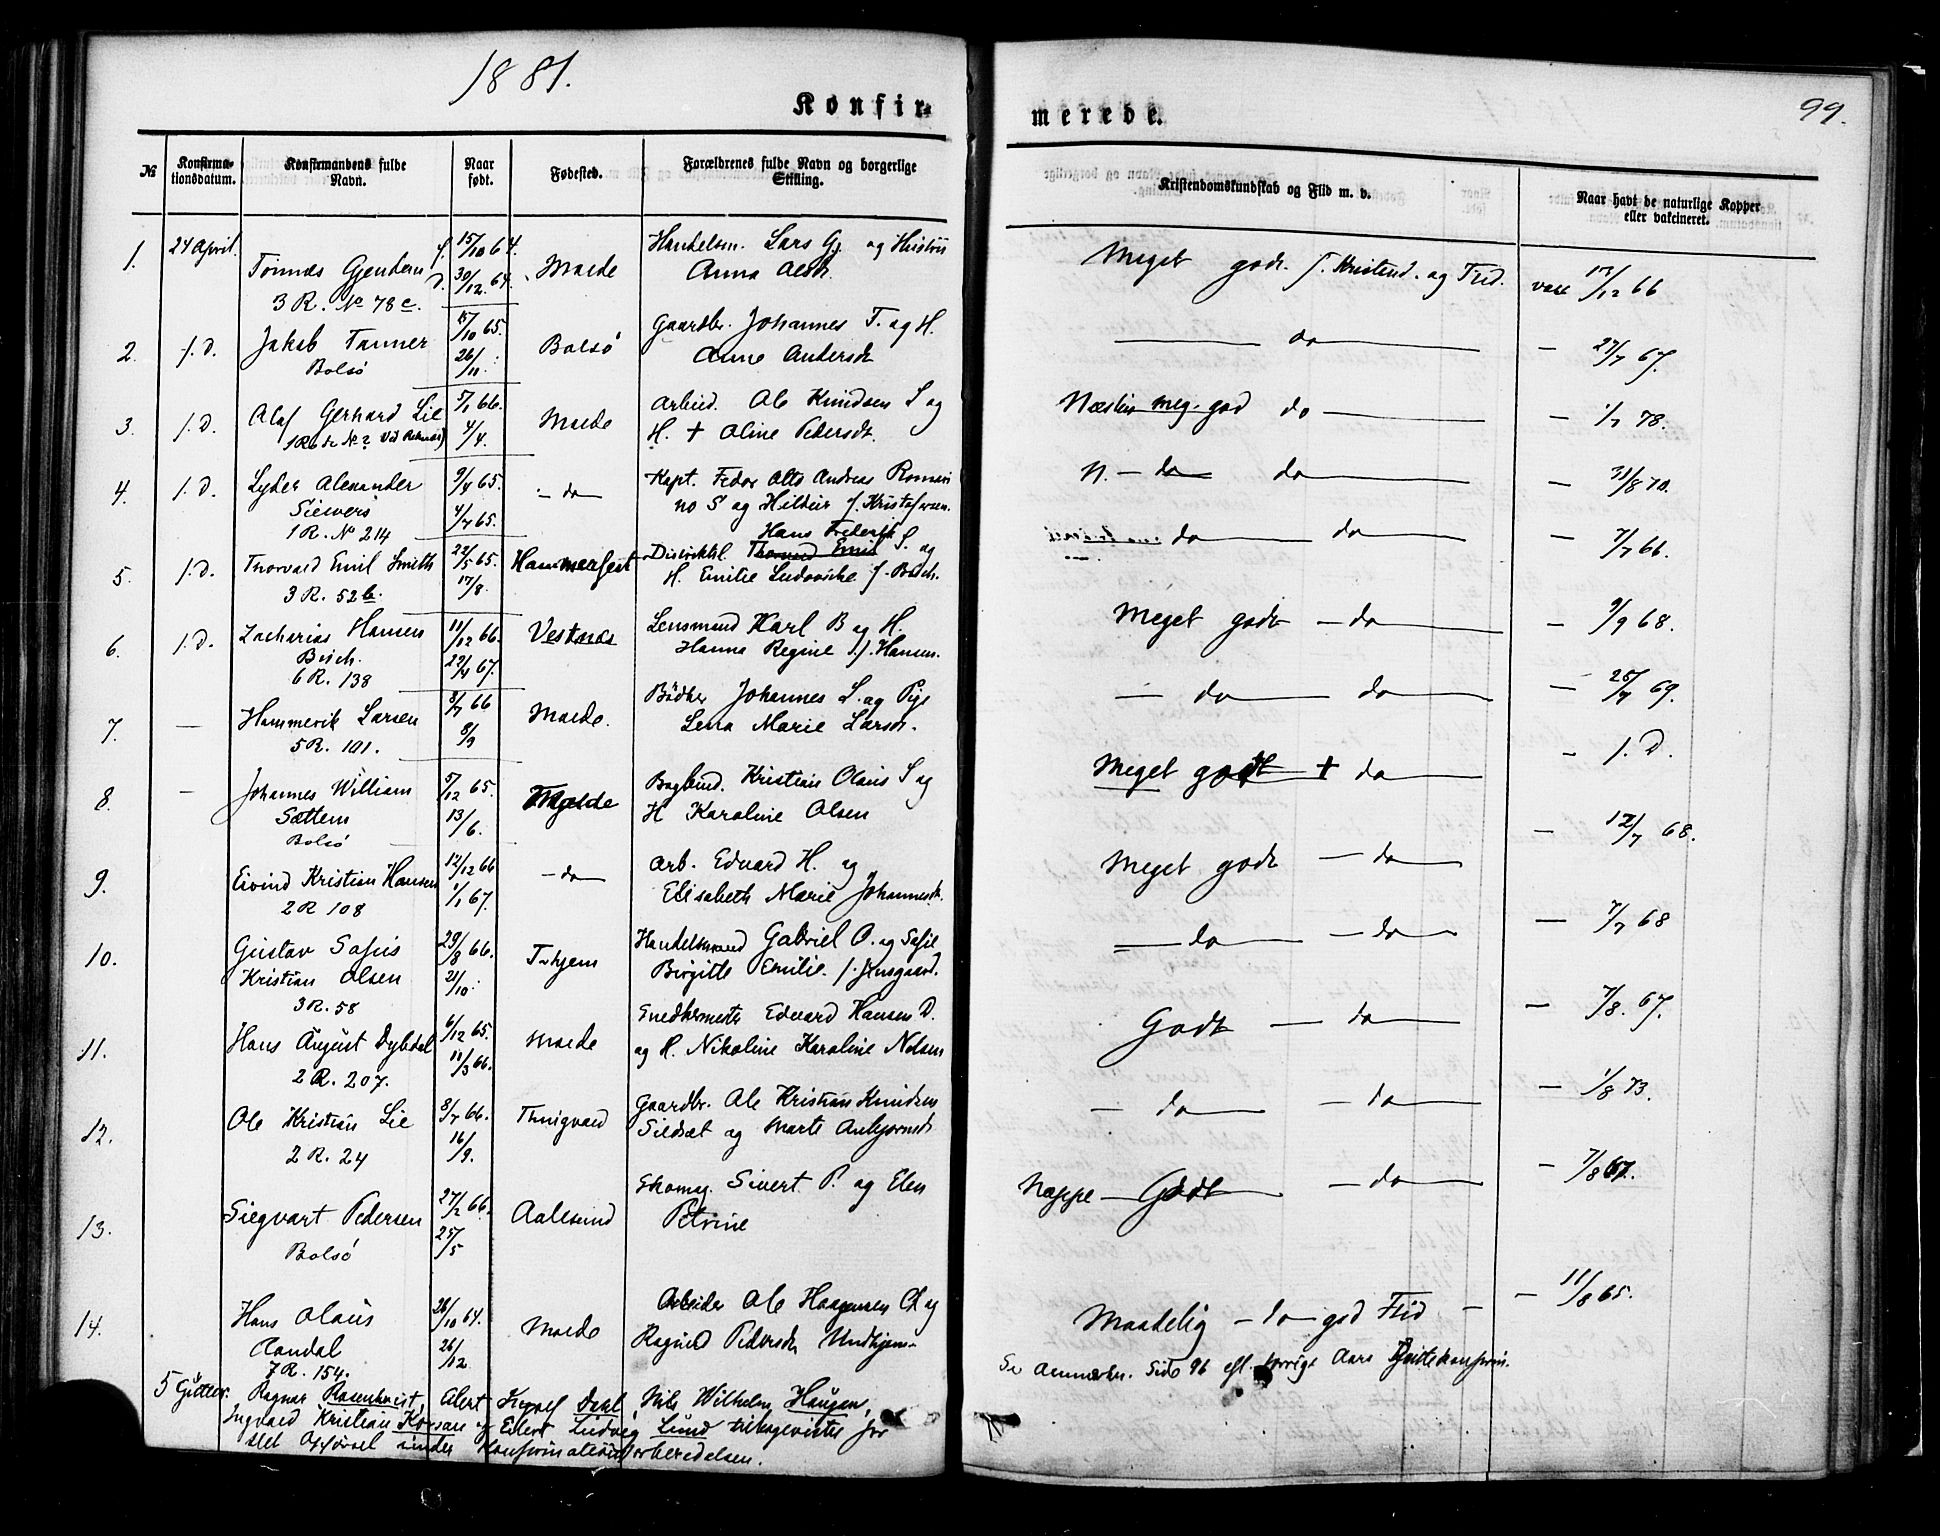 1881.
99.
Konfir- merede.
№ Konfirma- Konfirmandens fulde Naar Fødested. Forældrenes fulde Navn og borgerlige Kristendomskundskab og Flid m. v. Naar havt de naturlige Kopper
tionsdatum. Navn. født. Stilling. eller vakcineret.
1. 24 April. f. 15/10 64. Handelsm. Lars Gj. og Hustru Meget godt. f. Kristend. og Flid. vacc 13/12 66
Tønnes Gjendem d. 30/12. 64. Molde Anna
3 R. No 78 c.
2. f. D. Jakob Tanner 15/10 65. Bolsø Gaardbr. Johannes T. og H. do 27/7 67.
Bolsø 26/11. Anne Andersdt
3. f. D. Olaf Gerhard Lie 5/1 66. Molde Arbeid. Ole Knudsen L og Næsten meg. god do 1/7 78.
4/4. H. + Oline Pedersdt.
4. f. D. Lyder Alexander 9/4 65. do Kapt. Fedor Otto Andreas Romeri N. do do 31/8 70.
Sievers 4/7 65. no S og Hildur f. Kristofersen.
1 R. No 214
Hans Frederik
5. f. D. Thorvald Emil Smith 22/5 65. Hammerfest Distriktsl. Thorvald Emil S. og do do 7/7 66.
3 R. 52 b. 17/8. H. Emilie Ludovike f. Buch.
6. f. D. Zacharias Hansen 11/12 66. Vestnes Lensmand Karl B og H. Meget godt do 9/9 68.
Buch. 22/4 67. Hanna Regine f. Hansen.
6 R. 138
7. — Hammerik Larsen 8/7 66 Molde. Bødker Johannes L. og Pige do do 25/7 69.
5 R. 101. 8/9 Lena Marie Larsdt.
8. — Johannes William 5/12 65. Molde Bogbind. Kristian Olaus S og Meget godt + do f. D.
Sættem 13/6. H Karoline Olsen
Bolsø
9. Eivind Kristian Hansen 12/12 66 do Arb. Edvard H. og Meget godt do 12/7 68.
2 R 108 1/1 67. Elisabeth Marie Johannesdt.
10. Gustav Sofus 29/8 66. Handelsmand Gabriel O. og Sofie do do 7/7 68
Kristian Olsen 21/10. Birgitte Emilie
3 R. 58
11. Hans August Dybdal 6/12 65. Molde Snedkermester Edvard Hansen D. Godt do 7/8. 67.
2 R. 207. 11/3 66. og H. Nikoline Karoline Nelsen
12. Ole Kristian Lie 8/7 66. Gaardbr. Ole Kristian Knudsen do do 1/8 73.
2 R. 24 16/9. og Marte
13. Siegvart Pedersen 27/2 66. Aalesund Skomag. Sivert P. og Elen Neppe Godt do 7/8 67.
Bolsø 25/5 Petrine
14. Hans Olaus 26/10 64. Molde Arbeider Ole og Maadelig do god Flid 11/8 65.
7 R. 154. 26/12 Ragnild Pedersdt
Se Anmærkn. Side 96 eft. forrige Aars
5 Gutter. Ragnar Rosenkvist, Alert Dahl, Nils Wilhelm Haugen,
Ingvald Kristian og Eilert Ludvig Lund tilbageviste for
slet Opførsel under Konfirmationsforberedelsen.